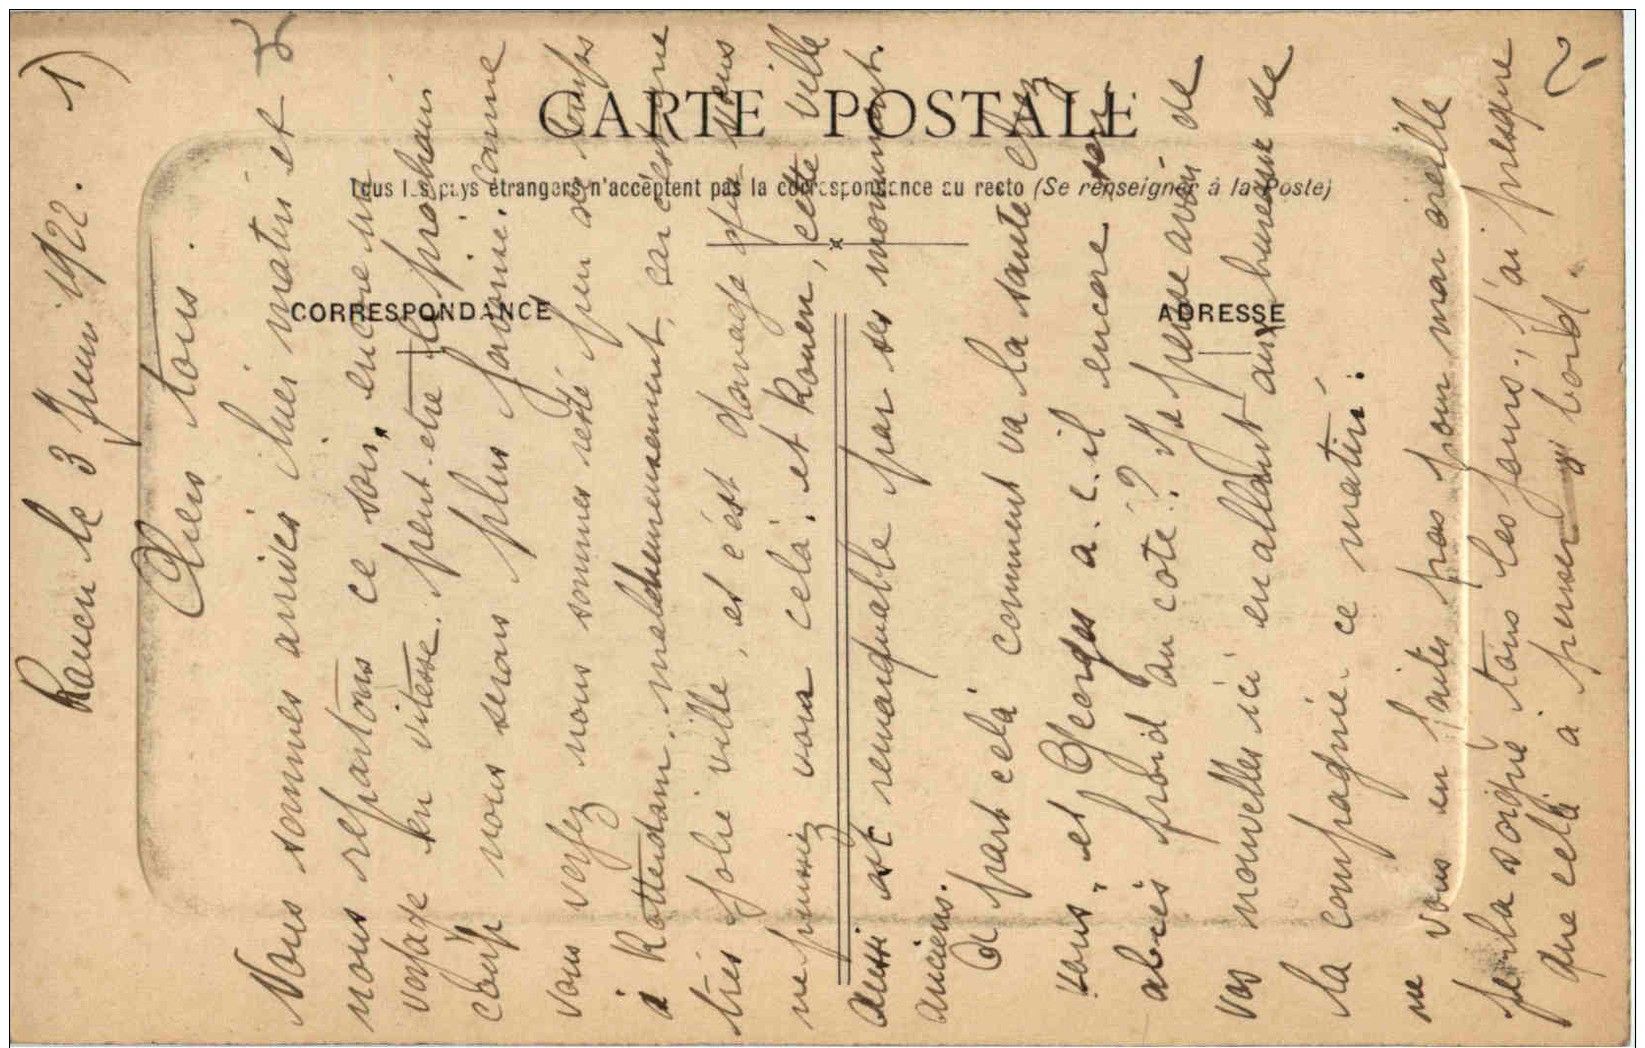 CARTE POSTALE
Tous les pays étrangers n'acceptent pas la correspondance au recto (Se renseigner à la Poste)
CORRESPONDANCE
ADRESSE
1)
Rouen le 3 Juin 1922.
Chers tous.
Nous sommes arrivés hier matin et
nous repartons ce soir, encore un
voyage en vitesse. peut-etre le prochain
coup nous serons plus favorisé. comme
vous voyez nous sommes resté peu de temps
à Rotterdam. malheureusement, car c'est une
très jolie ville, et c'est domage que vous
ne puissiez voir cela. et Rouen, cette ville
aussi est remarquable par ses monuments
anciens.
A part celà comment va la santé chez
vous, et Georges a.t.il encore ses
abcès froid au coté? Je pense avoir de
vos nouvelles ici en allant aux bureaux de
la compagnie ce matin.
ne vous en faites pas pour mon oreille
je la soigne tous les jours, j'ai presque
que celà à penser à bord.